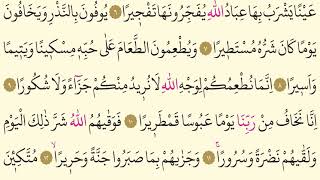 عَيْنًا يَشْرَبُ بِهَا عِبَادُ اللّٰهِ يُفَجِّرُونَهَا تَفْج۪يرًا ﴿٦﴾ يُوفُونَ بِالنَّذْرِ وَيَخَافُونَ
يَوْمًا كَانَ شَرُّهُ مُسْتَط۪يرًا ﴿٧﴾ وَيُطْعِمُونَ الطَّعَامَ عَلٰى حُبِّه۪ مِسْك۪ينًا وَيَت۪يمًا
وَاَس۪يرًا ﴿٨﴾ اِنَّمَا نُطْعِمُكُمْ لِوَجْهِ اللّٰهِ لَا نُر۪يدُ مِنْكُمْ جَزَٓاءً وَلَا شُكُورًا ﴿٩﴾
اِنَّا نَخَافُ مِنْ رَبِّنَا يَوْمًا عَبُوسًا قَمْطَر۪يرًا ﴿١٠﴾ فَوَقٰيهُمُ اللّٰهُ شَرَّ ذٰلِكَ الْيَوْمِ
وَلَقّٰيهُمْ نَضْرَةً وَسُرُورًاۚ ﴿١١﴾ وَجَزٰيهُمْ بِمَا صَبَرُوا جَنَّةً وَحَر۪يرًاۙ ﴿١٢﴾ مُتَّكِـ۪ٔينَ